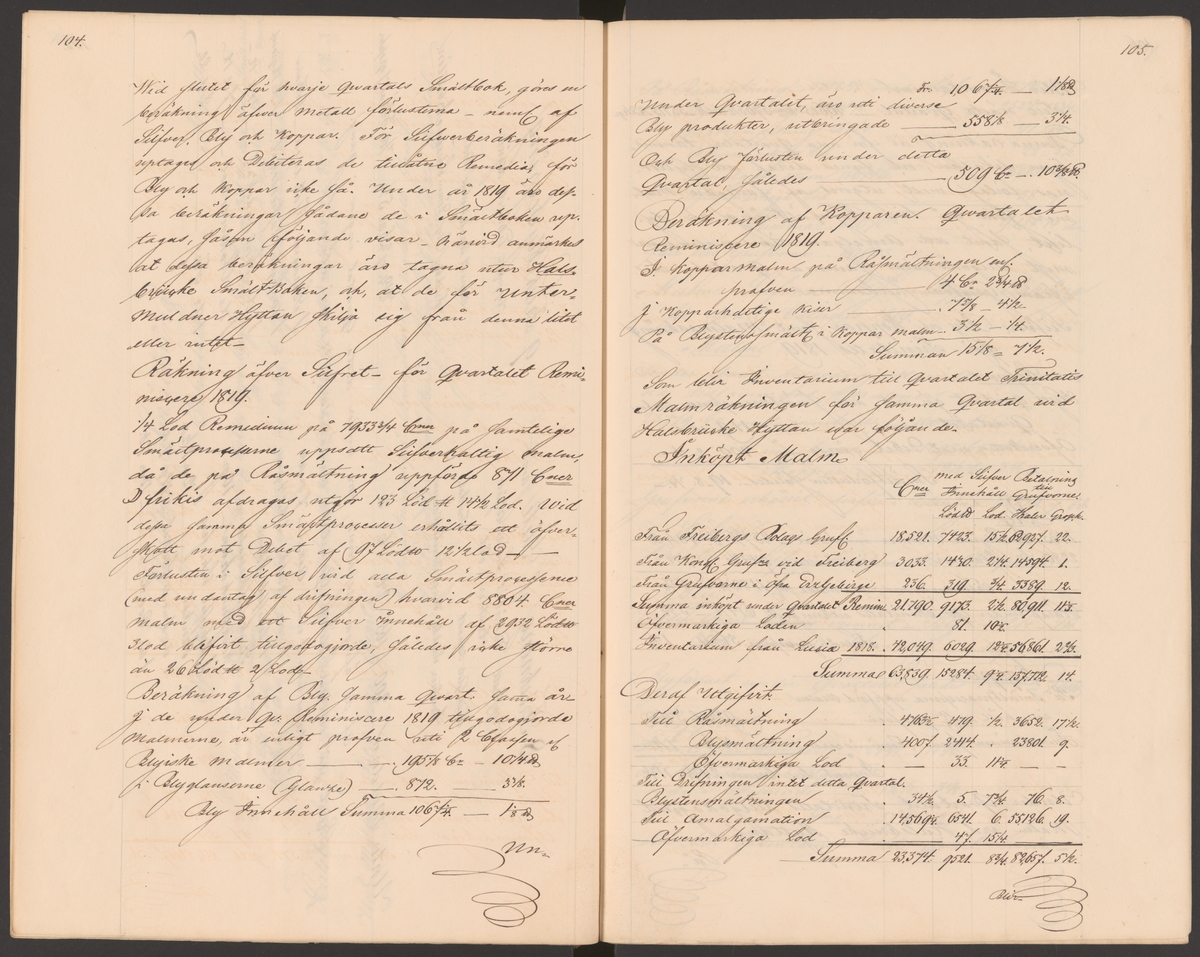 104.
Wid slutet för hvarje Qvartals Smältbok, göres en
beräkning öfver Metall förlusterna – neml. af
Silfver, Bly och Koppar. För Silfverberäkningen
uptages och Debiteras de tillåtne Remedia, för
Bly och Koppar icke så. Under år 1819 äro des-
sa beräkningar sådane de i Smältboken up-
tagas, såsom följande visar – hvarvid anmärkes
at dessa beräkningar äro tagna utur Hals-
brücke Smält-Boken, och, at de för Unter-
Muldner Hyttan skilja sig från denna litet
eller intet –
Räkning öfver Silfret – för Qvartalet Remi-
niscere 1819.
1/4 Lod Remedium på 7933 Cner på samtelige
Smältprocesserne uppsatt Silfverhaltig malm,
då de på Råsmältning uppförde 871 Cner
afdragas utgör 123 Löd ℔ 14 1/2 Lod. Wid
desse samma Smältprocesser erhållits ett öfver-
skott mot Debet af (97 Löd ℔ 12 1/2 lod –
Förlusten i Silfver vid alla Smältprocesserne
(med undantag af drifningen) hvarvid 8804. Cner
malm med ett Silfver Innehåll af 2932 Löd ℔
3 lod blifvit tillgodogjorde, således icke större
än 26 Löd ℔ 2 Lod –
Beräkning af Bly. Samma Qvart. sama år
I de under Qv. Reminiscere 1819 tillgodogjorde
Malmerne, är enligt profven uti 2 Classen af
Blyiske Malmer — 195 7/8 Cr – 10 1/4 ℔
i Blyglanserne (Glanze) — 872. — 3 1/8.
Bly Innehåll Summa 1067 — 1 1/8 ℔
Un-
105.
Tr. 1067 — 1 1/8 ℔
Under Qvartalet, äro uti diverse
Bly produkter, utbringade — 558 1/8 — 3 1/4.
Och Bly förlusten under detta
Qvartal, således — 509 Cr –
Beräkning af Kopparen. Qvartalet
Reminiscere 1819.
I Kopparmalm på Råsmältningen enl.
profven — 4 Cr 2 3/4 ℔
I Kopparhaltige Kiser — 7 5/8 – 4 1/2
På Blystenssmält. i Koppar malm – 3 1/2 – 1/4.
Summan 15 1/8 = 7 1/2.
Som blir Inventarium till Qvartalet Trinitatis
Malmräkningen för samma Qvartal vid
Halsbrücke Hyttan var följande.
Inköpt Malm
Cner med Silfver Innehåll Betalning till Grufvorne
Löd ℔ Lod Thaler Grosch.
Från Freibergs Bolags Gruf. 18,521. 7423. 15 1/2 62927. 22.
Från Kongl. Gruf. vid Freiberg 3033. 1430. 2 1/4. 14594. 1.
Från Grufvorne i Öfra Erzgebirge 236. 319. 3/4. 3389. 12.
Summa inköpt under Qvartalet Remin. 21,790. 9173. 2 1/2. 80,911. 11 1/2.
Öfvermarkiga Loden 81.
Inventarium från Lucia 1818. 42,049. 6029. 56861. 2 1/2.
Summa 63,839. 15284. 14.
Deraf Utgifvit.
Till Råsmältning 479. 1/2. 3652. 17 1/2.
Blysmältning 4007. 2414. . 23801. 9.
Öfvermarkiga Lod — 33. 11 1/2. — —
Till Drifningen intet detta Qvartal.
Blystenssmältningen 34 1/2 5. 7 3/4. 76. 8.
Till Amalgamation 14,569 6541. 6. 55126. 19.
Öfvermarkiga Lod 47. 15 1/4.
Summa 23,374. 9521. 8 3/4. 82657. 5 1/2.